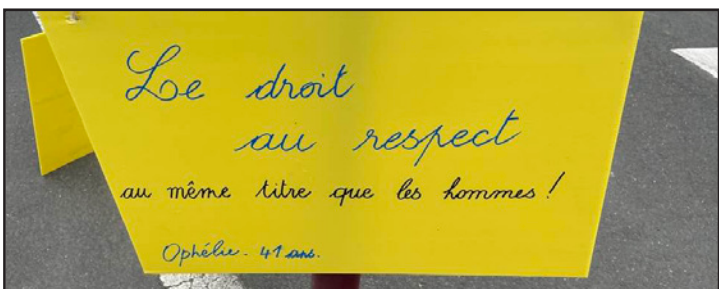 Le droit
au respect
au même titre que les hommes !
Ophélie - 41 ans.